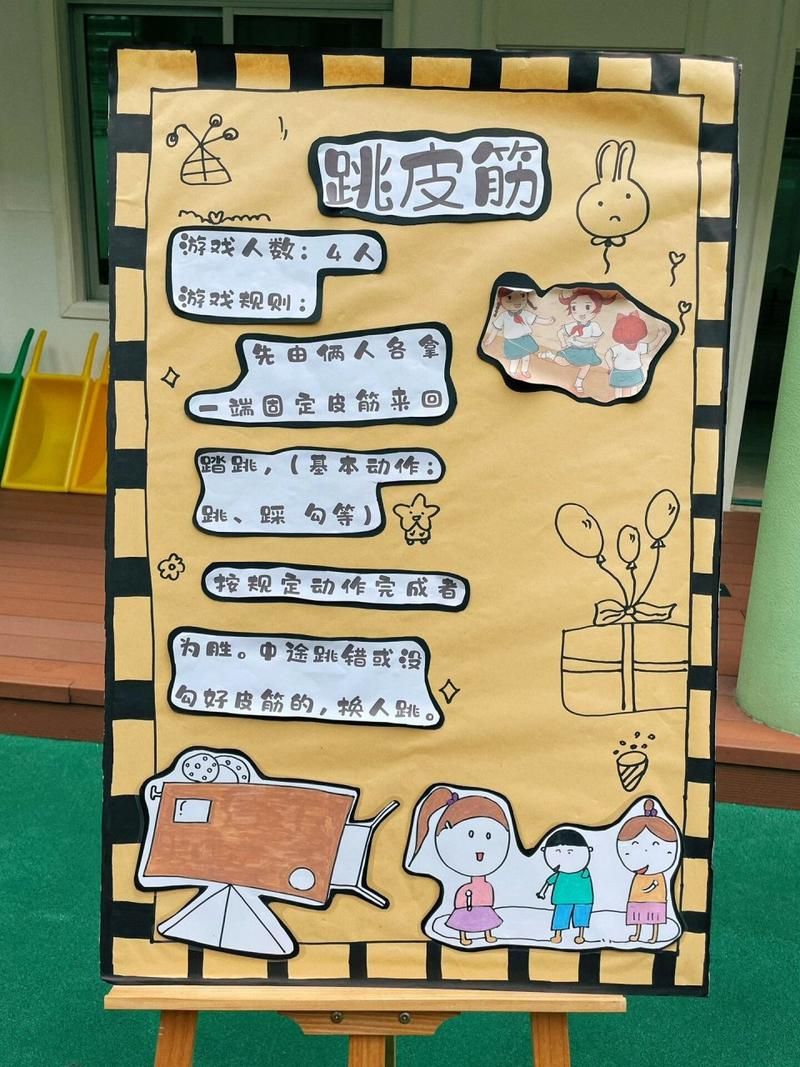 跳皮筋
游戏人数：4人
游戏规则：
先由俩人各拿
一端固定皮筋来回
踏跳，（基本动作：
跳、踩 勾等）
按规定动作完成者
为胜。中途跳错或没
勾好皮筋的，换人跳。